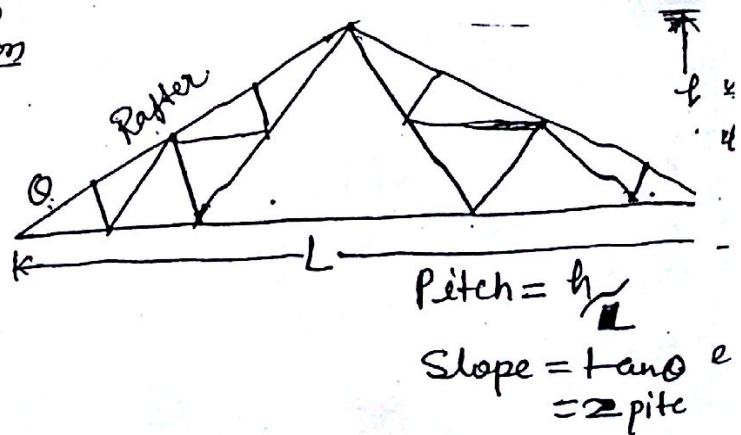 Rafter
θ
h
L
Pitch = h/L
Slope = tanθ
= 2 pitc